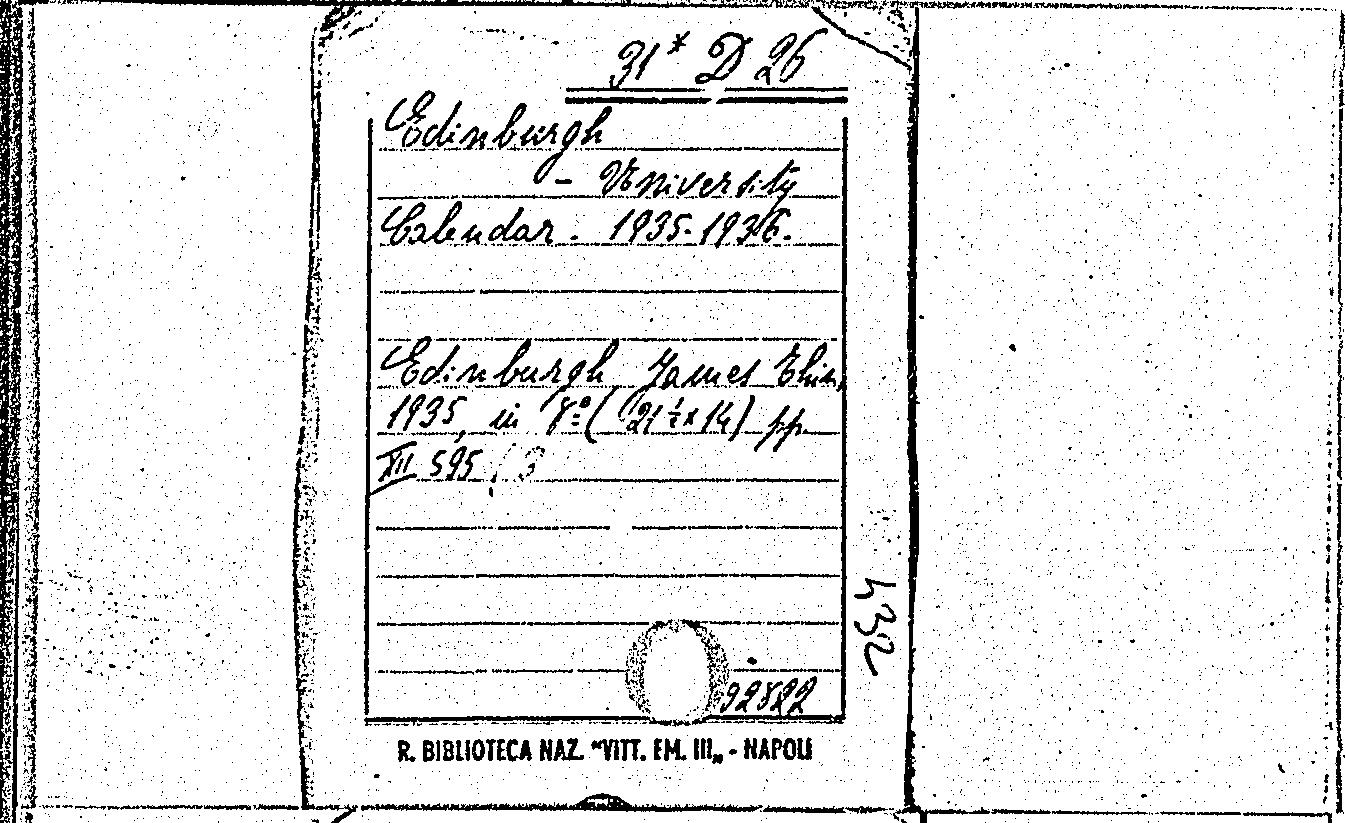 31* D 26
Edinburgh
- University
Calendar. 1935-1936.
Edinburgh James Thin,
1935, in 8º (21½x14) pp.
XII 595
92822
R. BIBLIOTECA NAZ. "VITT. EM. III„ - NAPOLI